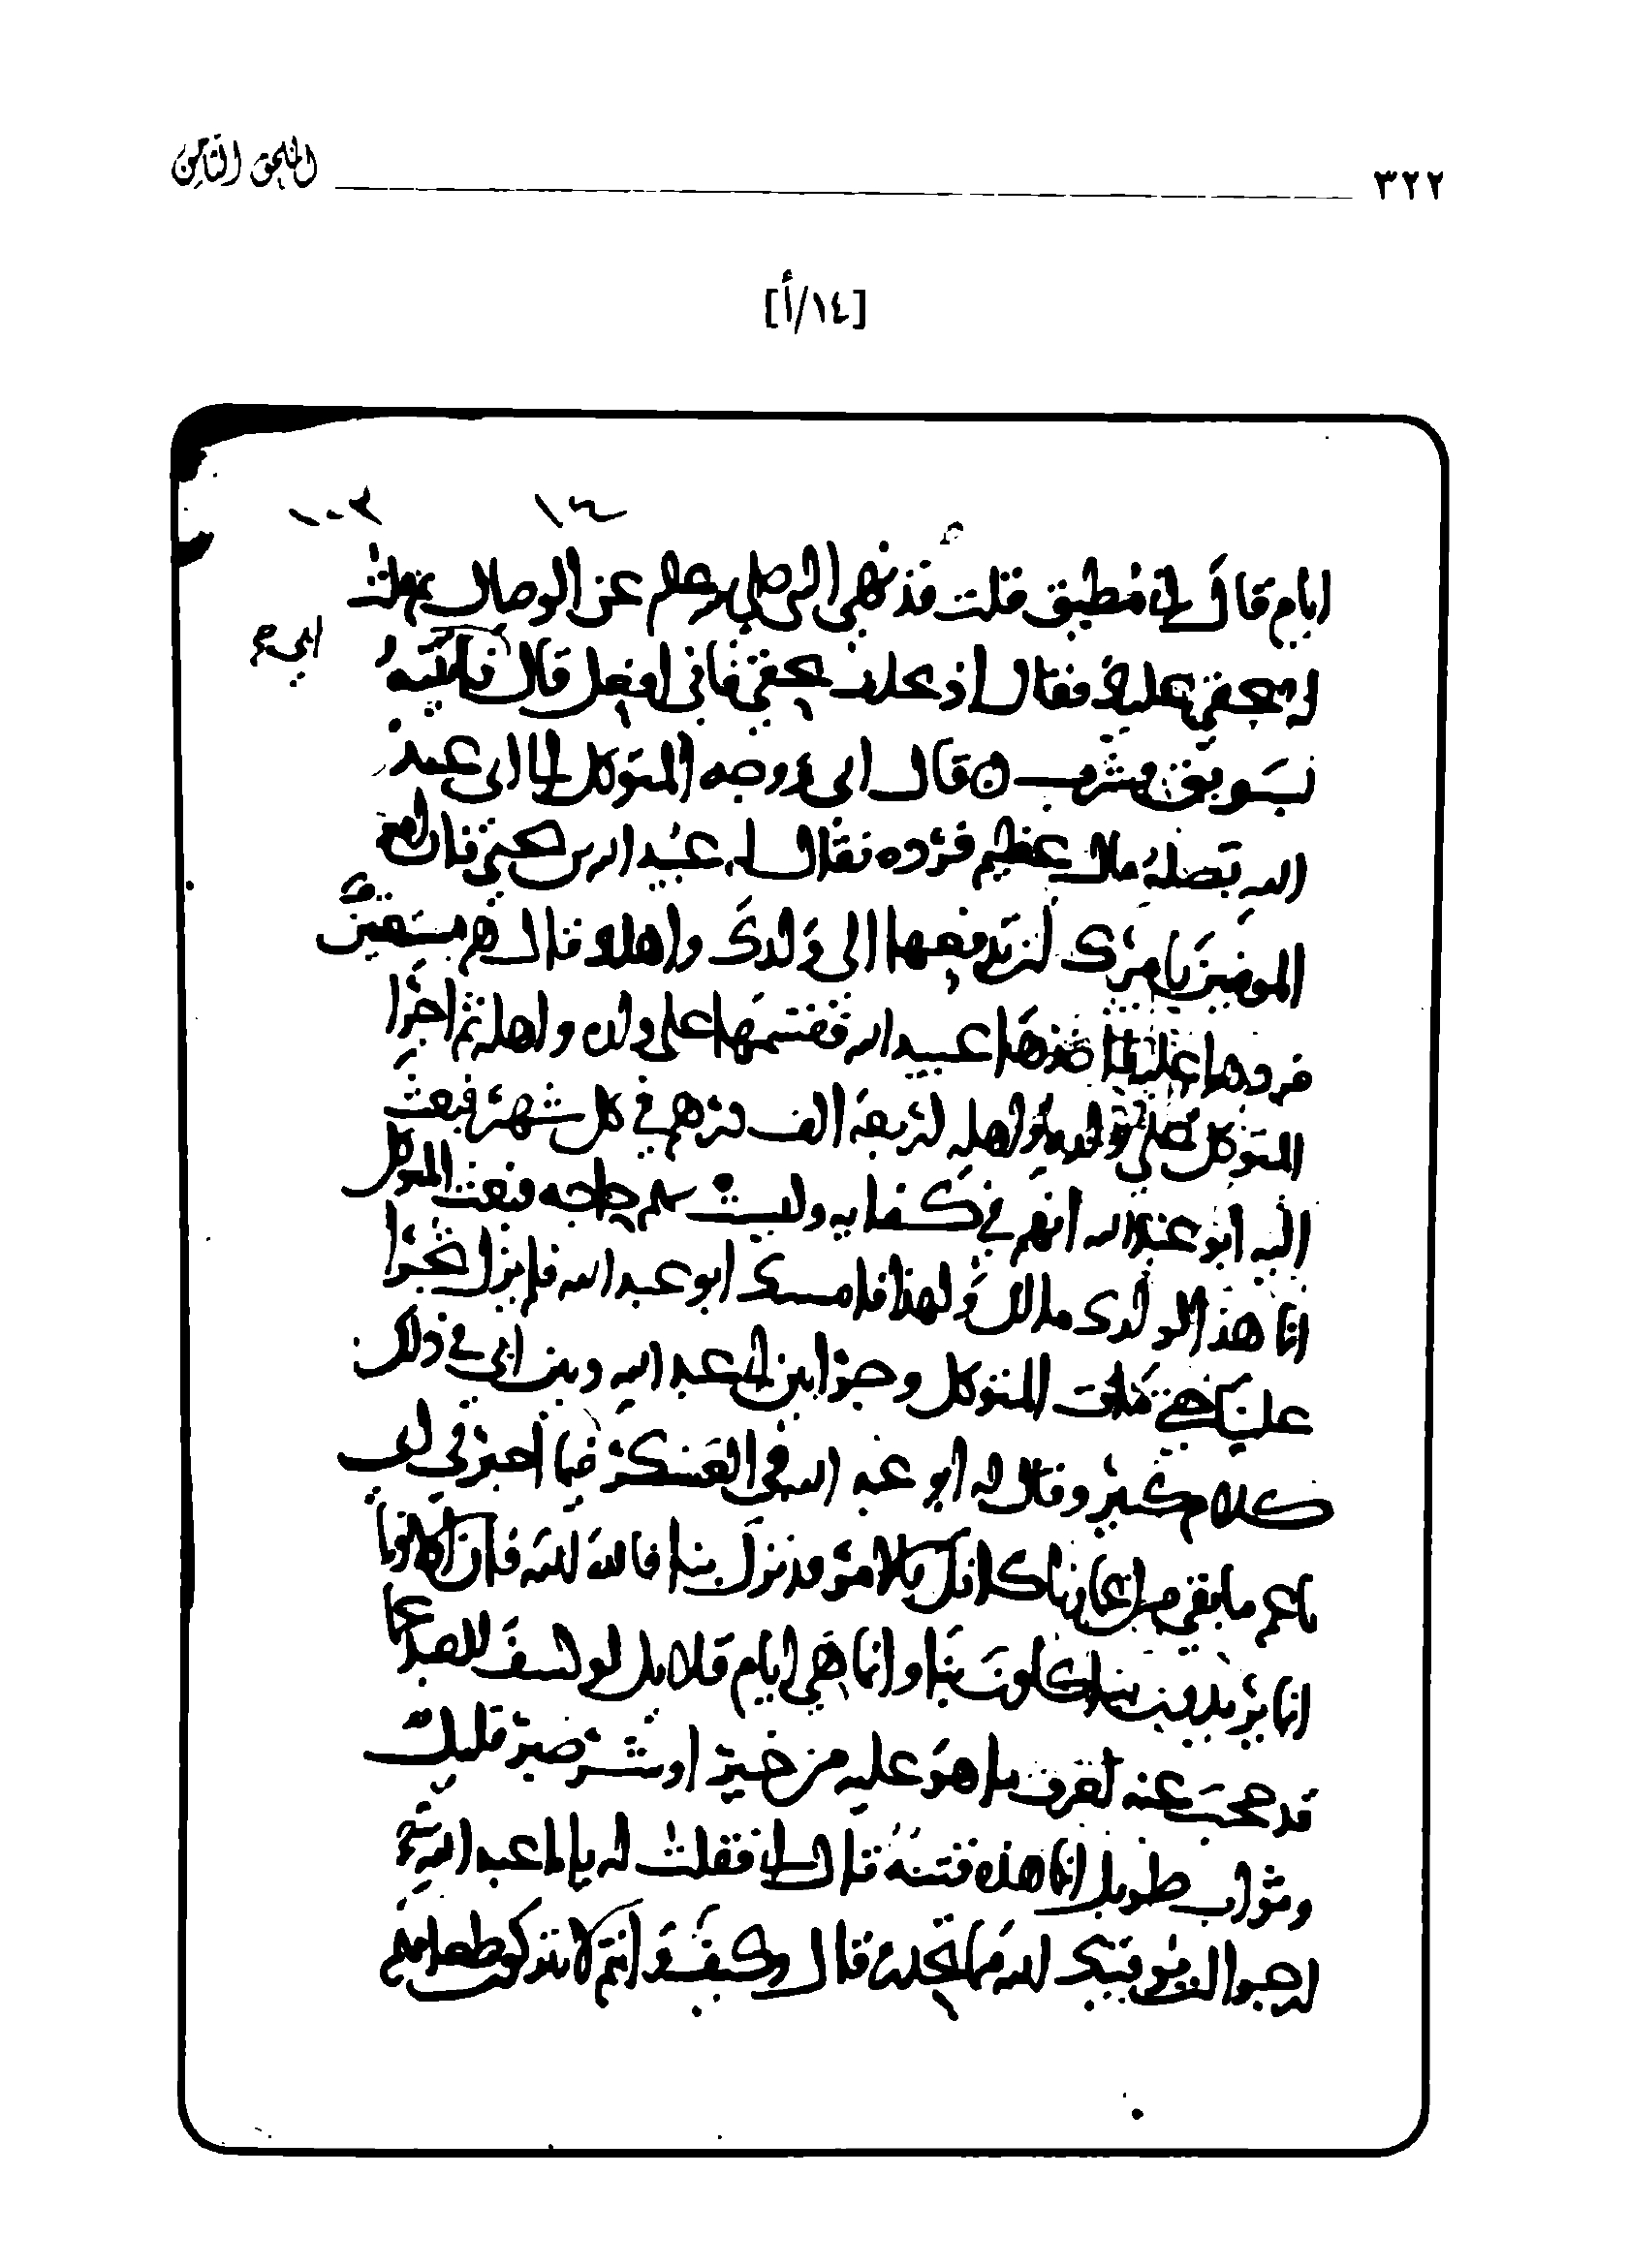 ٣٢٢ الملحق الثامن
[١٤/أ]
١٤
ايام قال اني مطيق قلت قد نهى النبي صلى الله عليه وسلم عن الوصال
بحقي عليك فقال اذ تحلف بحقي فاني افعل قال فاتيته
بسويق فشرب ه قال ابي ووجه المتوكل الى ابي عبد
الله بصله مال عظيم فرده فقال له عبيد الله بن يحيى فان امير
المومنين يامرك ان تدفعها الى ولدك واهلك قال هم مستغنين
فردها عليه فاخذها عبيد الله فقسمها على ولده واهله ثم اجرا
المتوكل على ولده واهله اربعة الف درهم في كل شهر فبعث
اليه ابو عبد الله انهم في كفايه وليست بهم حاجه فبعث المتوكل
انما هذا لولدك مالك ولهذا فامسك ابو عبد الله فلم يزل يجرا
علينا حتى مات المتوكل وجرا بين ابي عبد الله وبين ابي في ذلك
كلام كثير وقال له ابو عبد الله في العسكر فيما اخبرني ابي
يا عم ما بقي من اعمارنا كانك بالامر قد نزل بنا فالله الله فان اولادنا
انما يريدون يتاكلون بنا وانما هي ايام قلايل لو كشف للعبد عما
قد حجب عنه لعرف ما هو عليه من خير او شر صبر قليل
وثواب طويل انما هذه فتنه قال ابي فقلت له يابا عبد الله
ارجوا ان يوقيك الله مما تحذر قال وكيف وانتم لا تتركون طعامهم